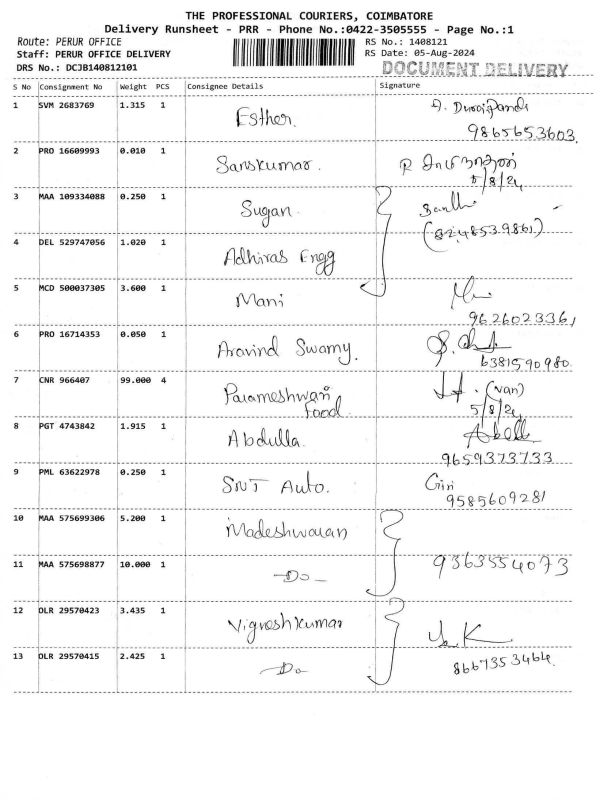 THE PROFESSIONAL COURIERS, COIMBATORE
Delivery Runsheet - PRR - Phone No.:0422-3505555 - Page No.:1
Route: PERUR OFFICE RS No.: 1408121
Staff: PERUR OFFICE DELIVERY RS Date: 05-Aug-2024
DRS No.: DCJB140812101 DOCUMENT DELIVERY
S No Consignment No Weight PCS Consignee Details Signature
1 SVM 2683769 1.315 1 Esther.
9865653603
2 PRO 16609993 0.010 1 Sanskumar.
5/8/24
3 MAA 109334088 0.250 1 Sugan
(8248539861)
4 DEL 529747056 1.020 1 Adhiras Engg
5 MCD 500037305 3.600 1 Mani
9626023361
6 PRO 16714353 0.050 1 Aravind Swamy.
6381590980
7 CNR 966407 99.000 4 Parameshwari (van)
Food 5/8/24
8 PGT 4743842 1.915 1 Abdulla.
9659373733
9 PML 63622978 0.250 1 SNJ Auto. Giri
9585609281
10 MAA 575699306 5.200 1 Madeshwaran
11 MAA 575698877 10.000 1 -Do- 9363554073
12 OLR 29570423 3.435 1 Vignesh kumar
13 OLR 29570415 2.425 1 -Do- 8667353464